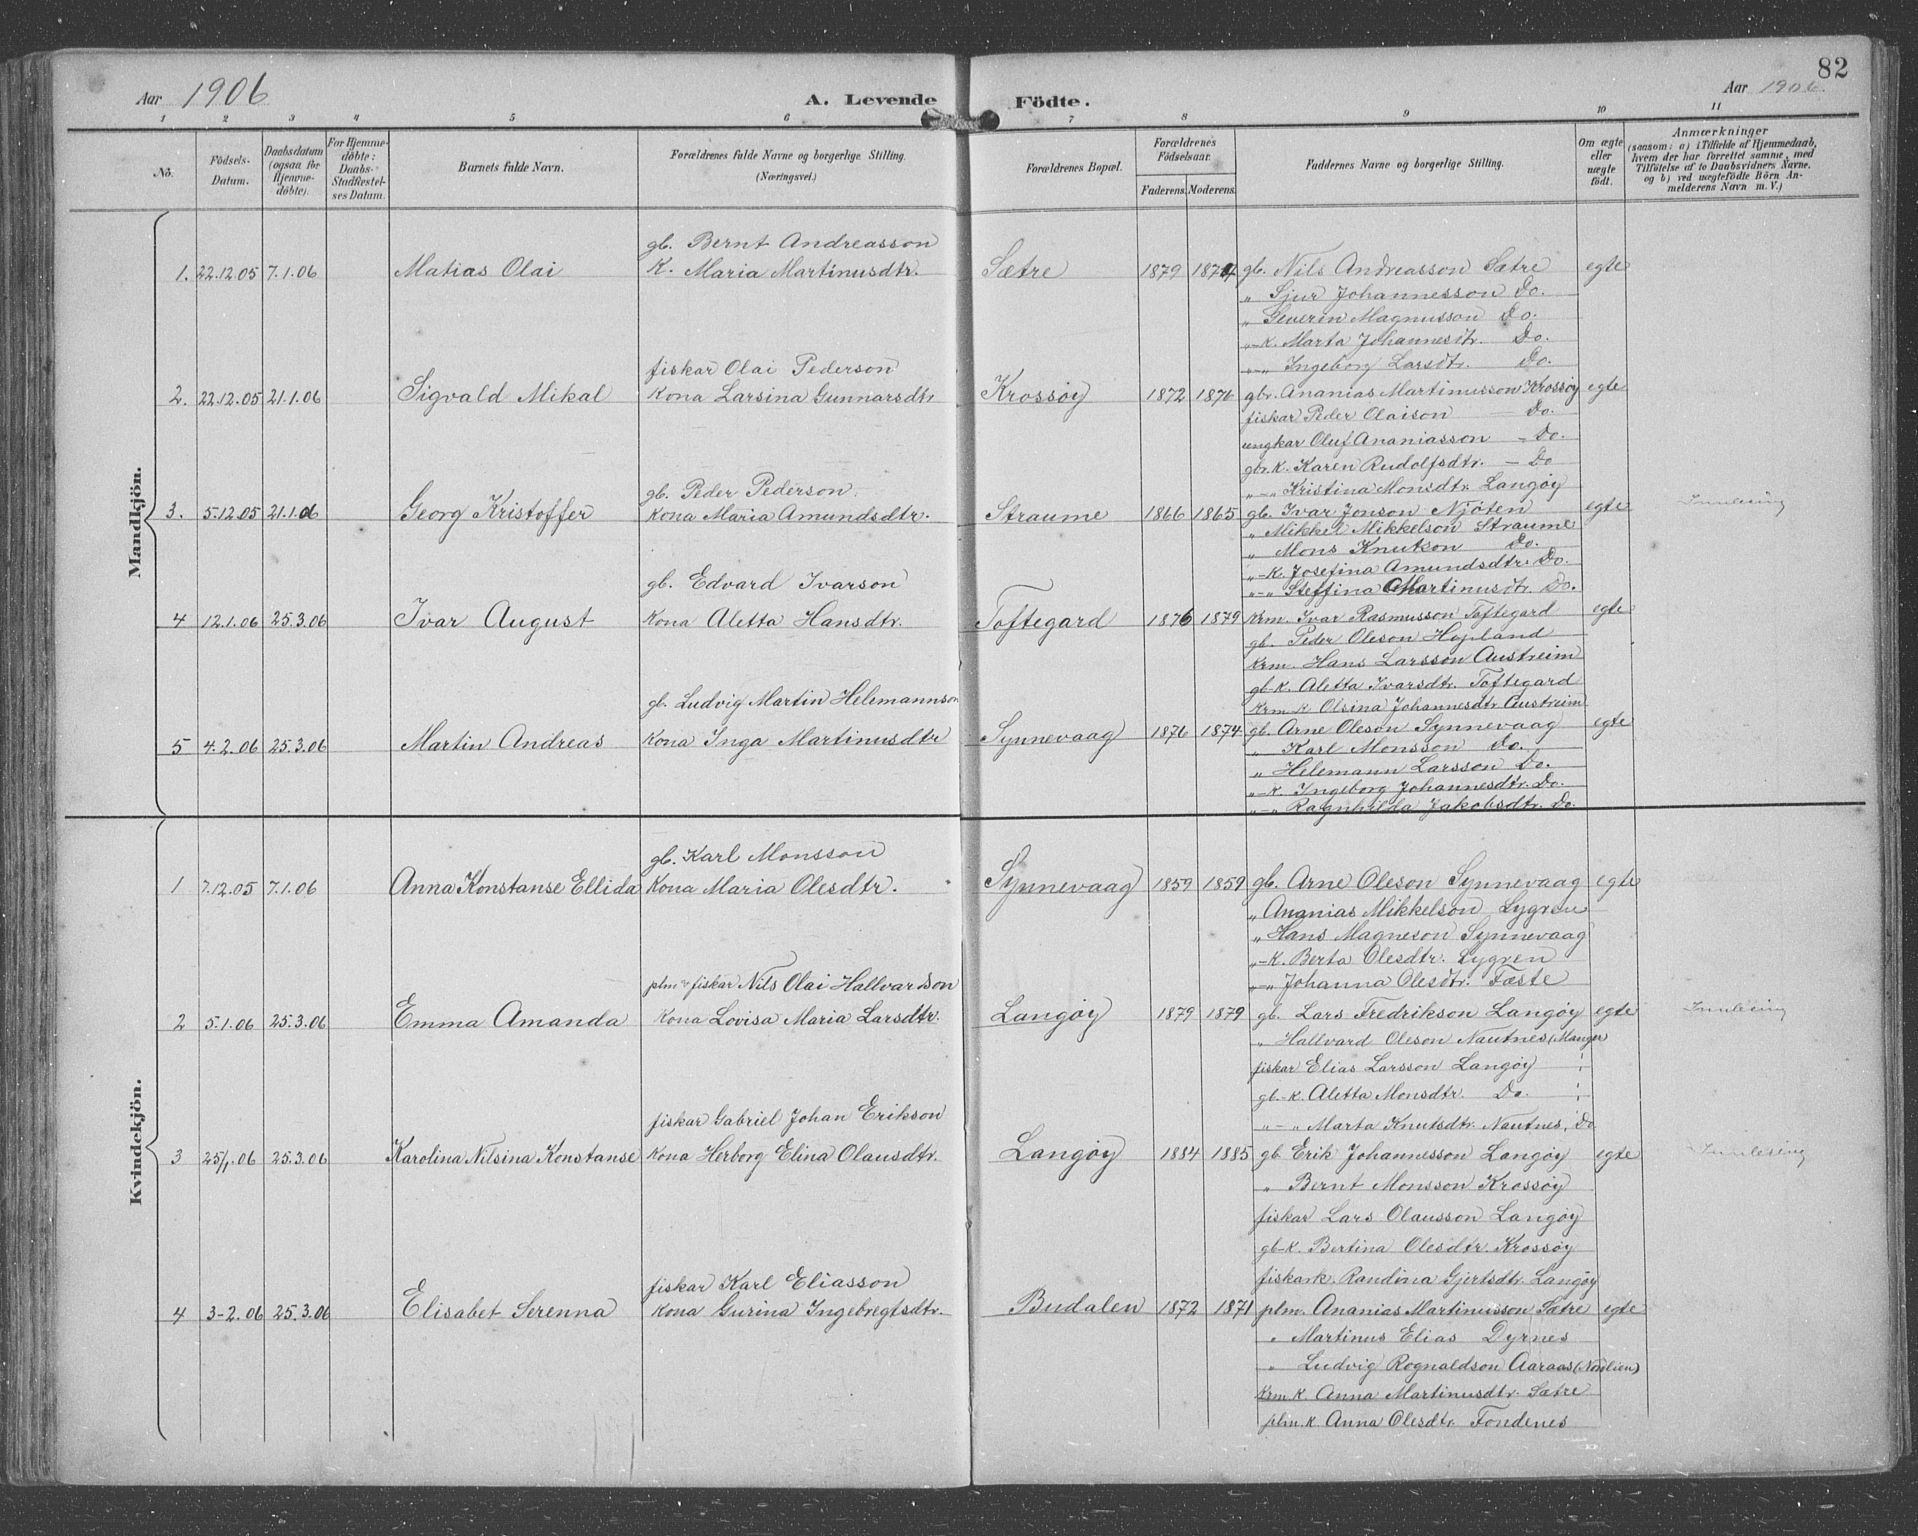 82
Aar 1906 A. Levende Födte. Aar 1906.
1 2 3 4 5 6 7 8 9 10 11
No.
Födsels-
Datum.
Daabsdatum
(ogsaa for
Hjemme-
döbte).
For Hjemme-
döbte:
Daabs-
Stadfæstel-
ses Datum.
Barnets fulde Navn.
Forældrenes fulde Navne og borgerlige Stilling.
(Næringsvei.)
Forældrenes Bopæl.
Forældrenes
Födselsaar.
Faderens. Moderens.
Faddernes Navne og borgerlige Stilling.
Om ægte
eller
uægte
født.
Anmærkninger
(saasom: a) i Tilfælde af Hjemmedaab,
hvem der har forrettet samme, med
Tilföielse af to Daabsvidners Navne.
og b) ved uægtefödte Börn An-
melderens Navn m. V.)
Mandkjön.
gb. Bernt Andreasson
1. 22.12.05 7.1.06 Matias Olai K. Maria Martinusdtr. Sætre 1879 1874 gb. Nils Andreasson Sætre egte
„ Sjur Johannesson Do.
„ Severin Magnusson Do.
„-K. Marta Johannesdtr. Do.
„-„ Ingeborg Larsdtr. Do.
fiskar Olai Pederson
2. 22.12.05 21.1.06 Sigvald Mikal Kona Larsina Gunnarsdtr Krossöy 1872 1876 gbr. Ananias Martinusson Krossöy egte
fiskar Peder Olaison — Do.
ungkar Oluf Ananiasson - Do.
gbr.K. Karen Rudolfsdtr. - Do
„-„ Kristina Monsdtr. Langöy
gb. Peder Pederson.
3. 5.12.05 21.1.06 Georg Kristoffer Kona Maria Amundsdtr. Straume 1866 1865 gb. Ivar Jonson Njöten egte Innlesing
„ Mikkel Mikkelson Straume
„ Mons Knutson Do.
„-K. Josefina Amundsdtr. Do.
„-„ Steffina Martinusdtr. Do.
gb. Edvard Ivarson
4 12.1.06 25.3.06 Ivar August Kona Aletta Hansdtr. Toftegard 1876 1879 Krm. Ivar Rasmusson Toftegard egte
gb. Peder Oleson Hopland
Krm. Hans Larsson Austreim
gb-K. Aletta Ivarsdtr. Toftegard
Krm-K Olsina Johannesdtr Austreim
gb. Ludvig Martin Helemannson
5 4.2.06 25.3.06 Martin Andreas Kona Inga Martinusdtr Synnevaag 1876 1874 gb. Arne Oleson Synnevaag egte
„ Karl Monsson Do.
„ Helemann Larsson Do.
„-K. Ingeborg Johannesdtr. Do.
„-„ Ragnhilda Jakobsdtr. Do.
Kvindekjön.
gb. Karl Monsson
1 7.12.05 7.1.06 Anna Konstanse Ellida Kona Maria Olesdtr. Synnevaag 1859 1859 gb. Arne Oleson Synnevaag egte
„ Ananias Mikkelson Lygren
„ Hans Magneson Synnevaag
„-K. Berta Olesdtr. Lygren
„-„ Johanna Olesdtr. Foste
plm & fiskar Nils Olai Hallvardson
2 5.1.06 25.3.06 Emma Amanda Kona Lovisa Maria Larsdtr. Langöy 1879 1879 gb. Lars Fredrikson Langöy egte Innlesing
„ Hallvard Oleson Nautnes (Manger)
fiskar Elias Larsson Langöy
gb-K. Aletta Monsdtr. Do.
„-„ Marta Knutsdtr. Nautnes, Do
fiskar Gabriel Johan Erikson
3 25/1.06 25.3.06 Karolina Nilsina Konstanse Kona Herborg Elina Olausdtr. Langöy 1884 1885 gb. Erik Johannesson Langöy egte Innlesing
„ Bernt Monsson Krossöy
fiskar Lars Olausson Langöy
gb-K. Bertina Olesdtr. Krossöy
fiskark. Randina Gjertsdtr. Langöy
fiskar Karl Eliasson
4 3-2.06 25.3.06 Elisabet Serenna Kona Gurina Ingebregtsdtr. Budalen 1872 1871 plm. Ananias Martinusson Sætre egte
„ Martinus Elias Dyrnes
„ Ludvig Rognaldson Aaraas (Nordlien)
Krm.K. Anna Martinusdtr. Sætre
plm.K. Anna Olesdtr. Fondenes